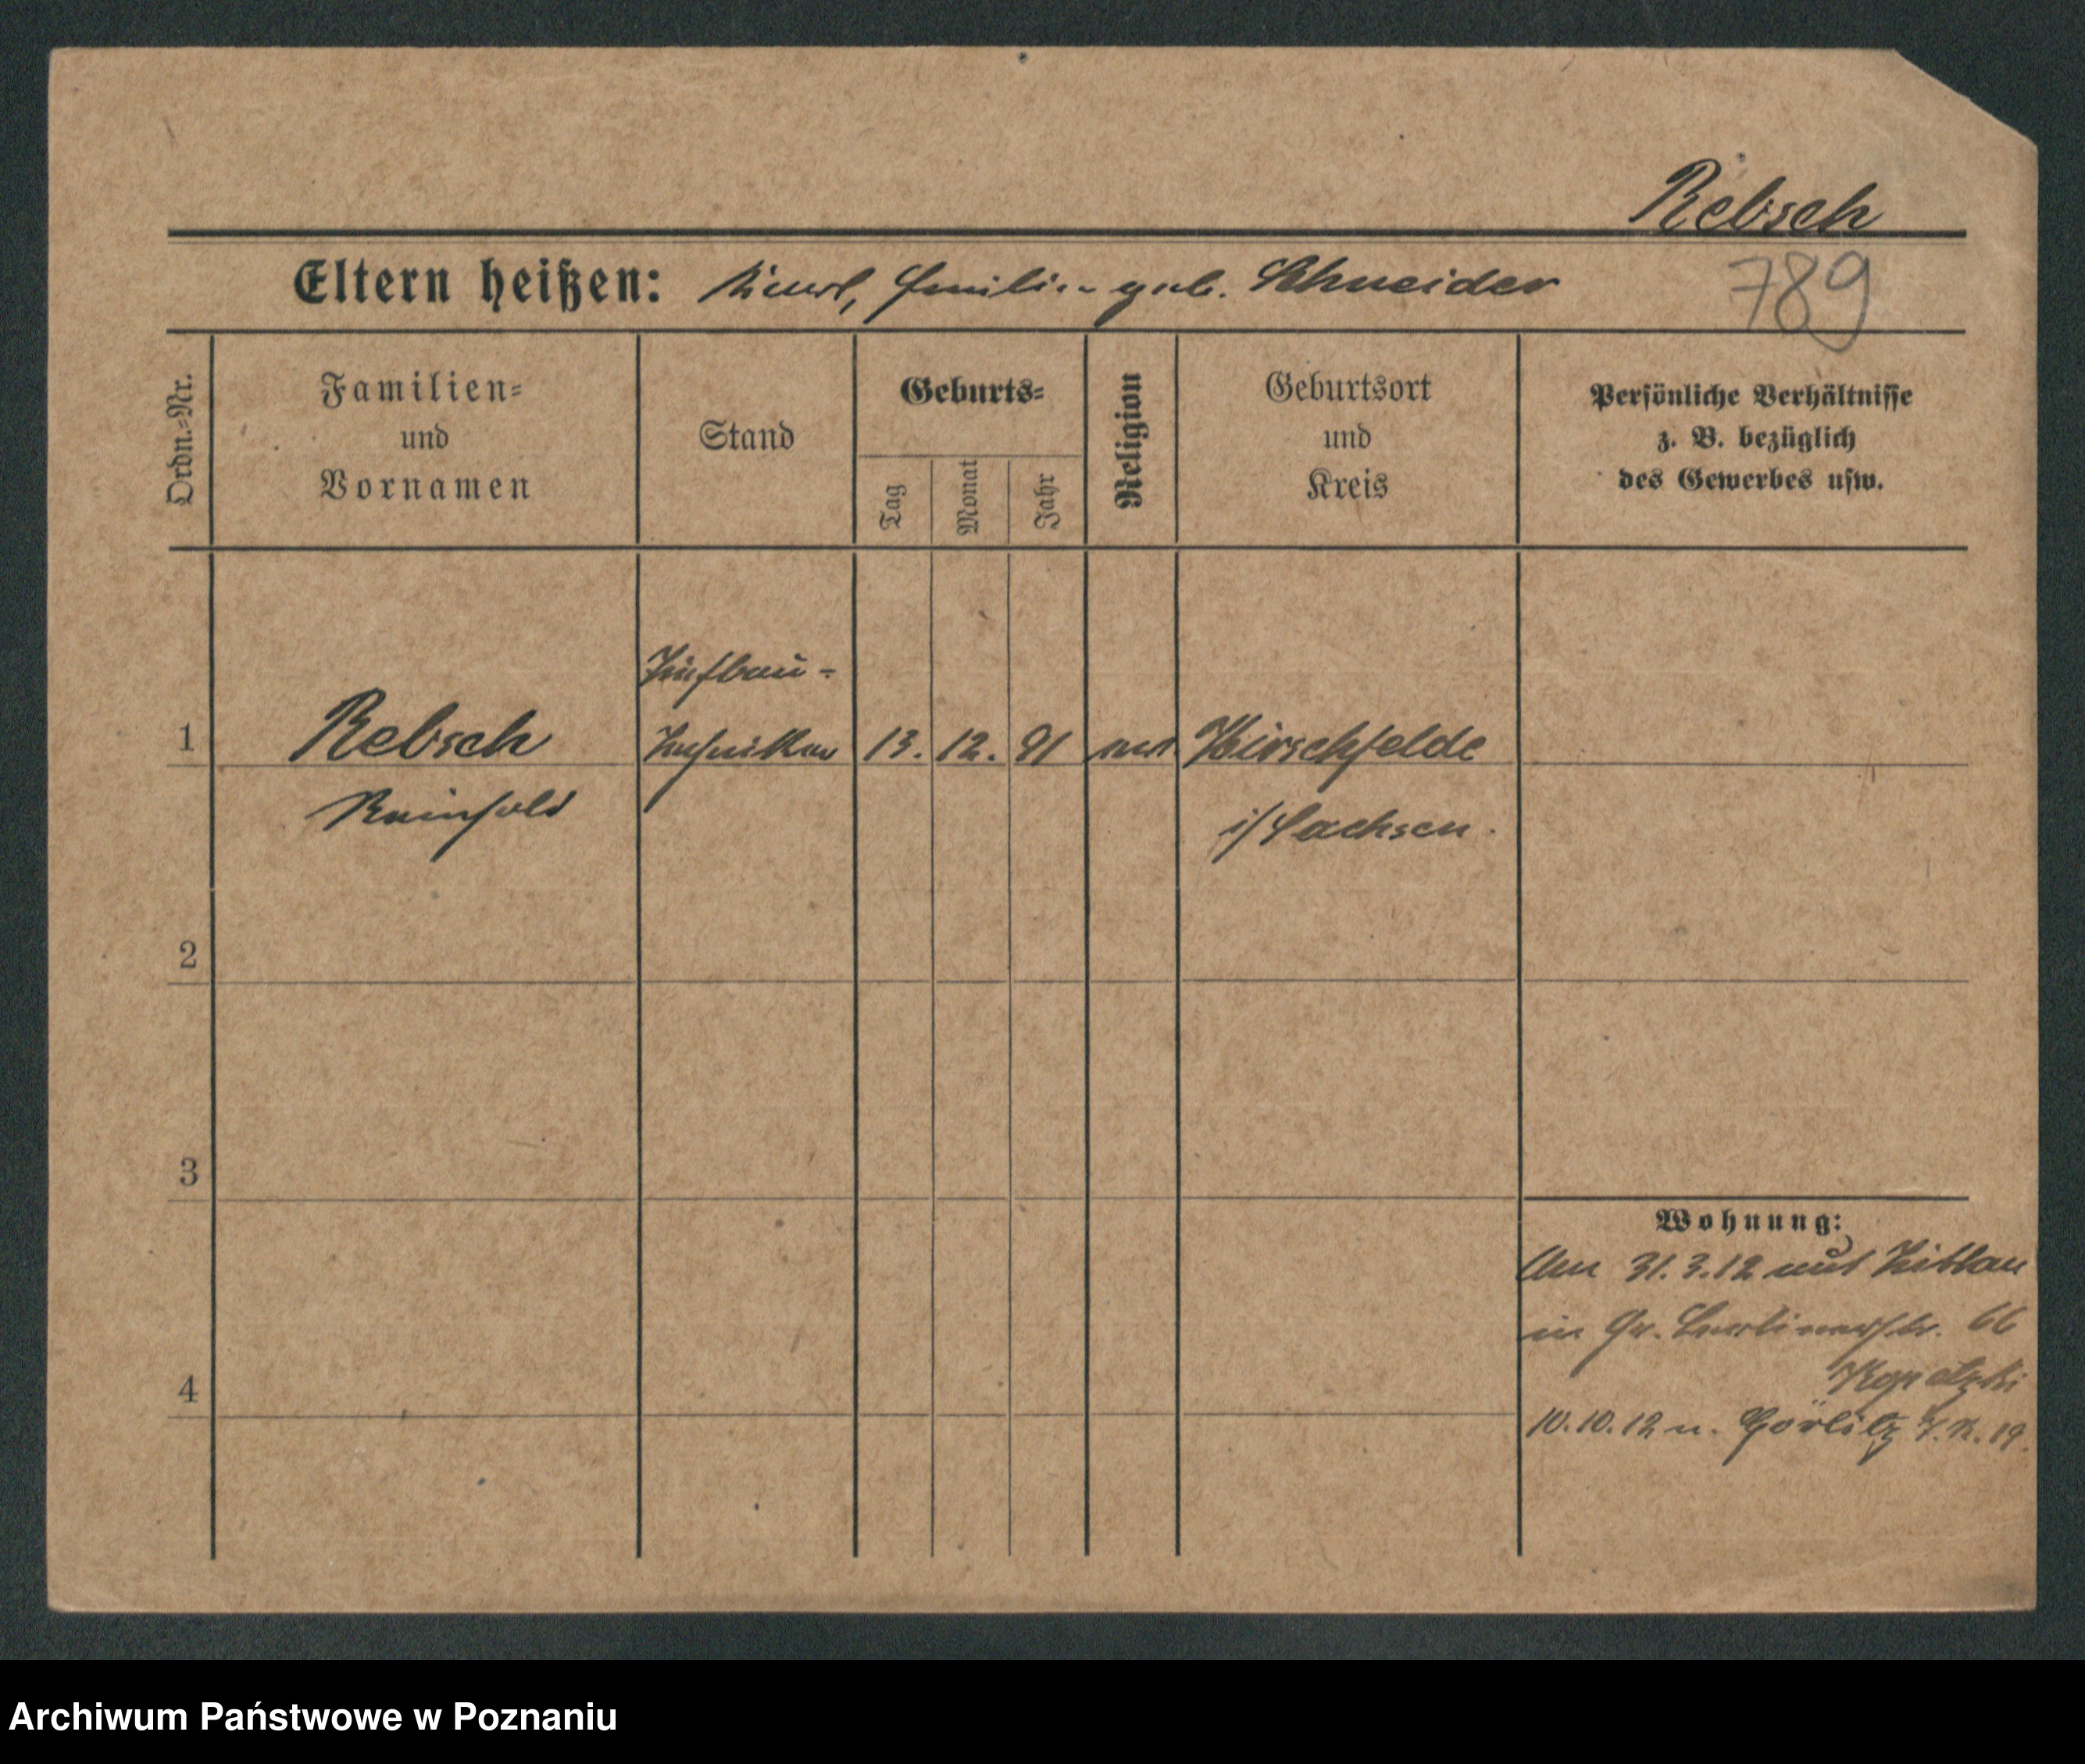 Rebsch
789
Eltern heißen: Emilie geb. Schneider
Ordn.-Nr.
Familien=
und
Vornamen
Stand
Geburts=
Tag
Monat
Jahr
Religion
Geburtsort
und
Kreis
Persönliche Verhältnisse
z. B. bezüglich
des Gewerbes usw.
Tiefbau-
1 Rebsch Techniker 13. 12. 91 Hirschfelde
Reinhold i/Sachsen.
2
3
Wohnung:
Am 31.3.12 aus Zittau
in Gr. Berlinerstr. 66
4
10.10.12 n. Görlitz
Archiwum Państwowe w Poznaniu